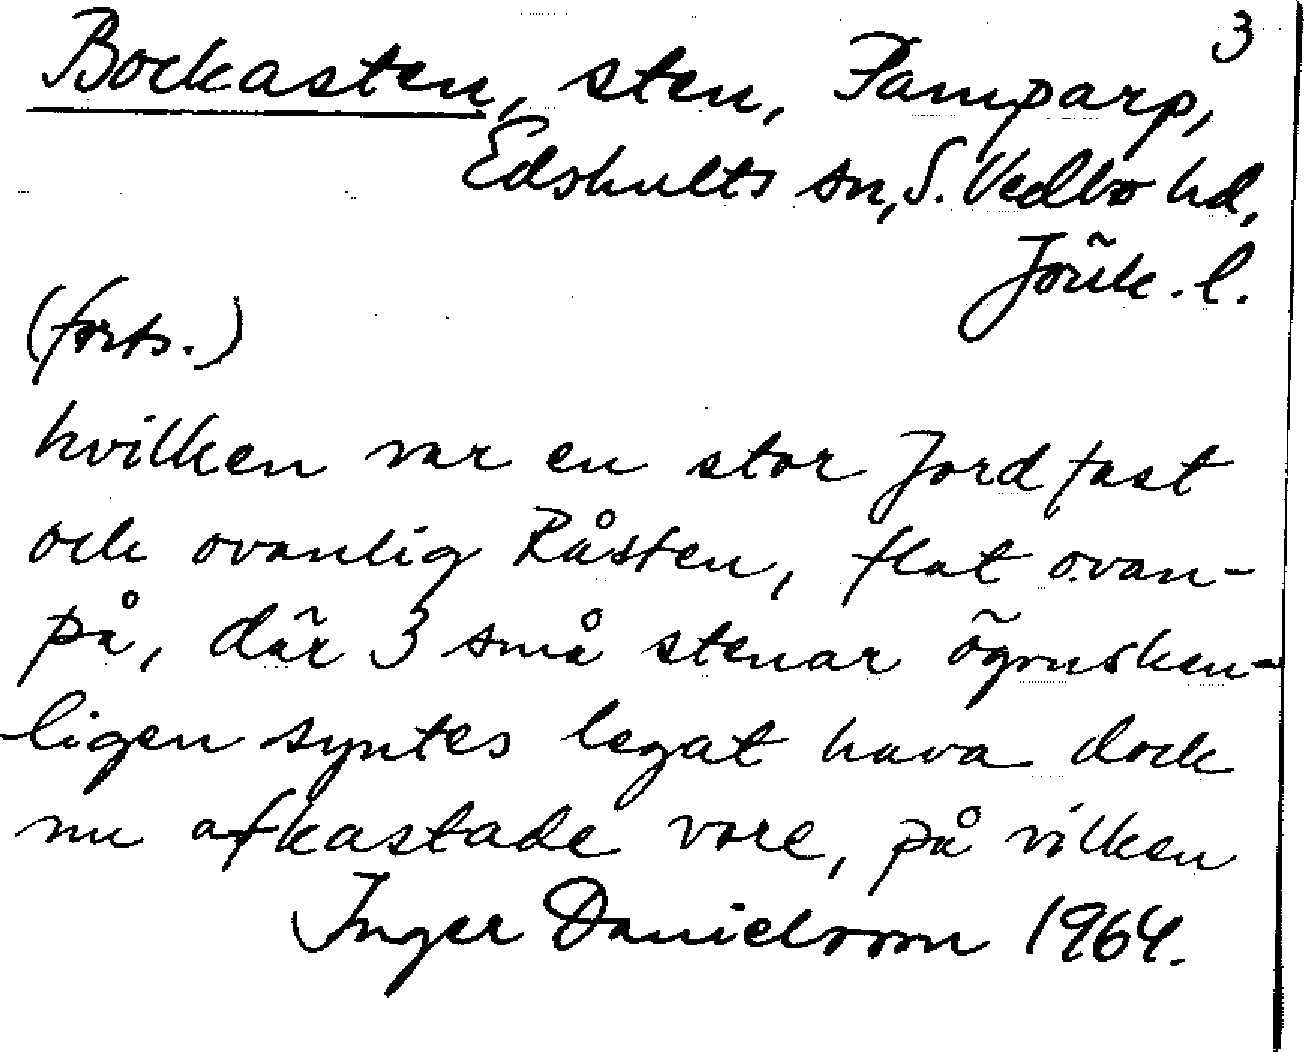 3
Bockasten, sten, Pamparp,
Edshults sn, S. Vedbo hd,
Jönk. l.
(forts.)
hvilken var en stor Jordfast
och ovanlig Råsten, flat ovan-
på, där 3 små stenar ögonsken-
ligen syntes legat hava dock
nu afkastade vore, på vilken
Inger Danielsson 1964.